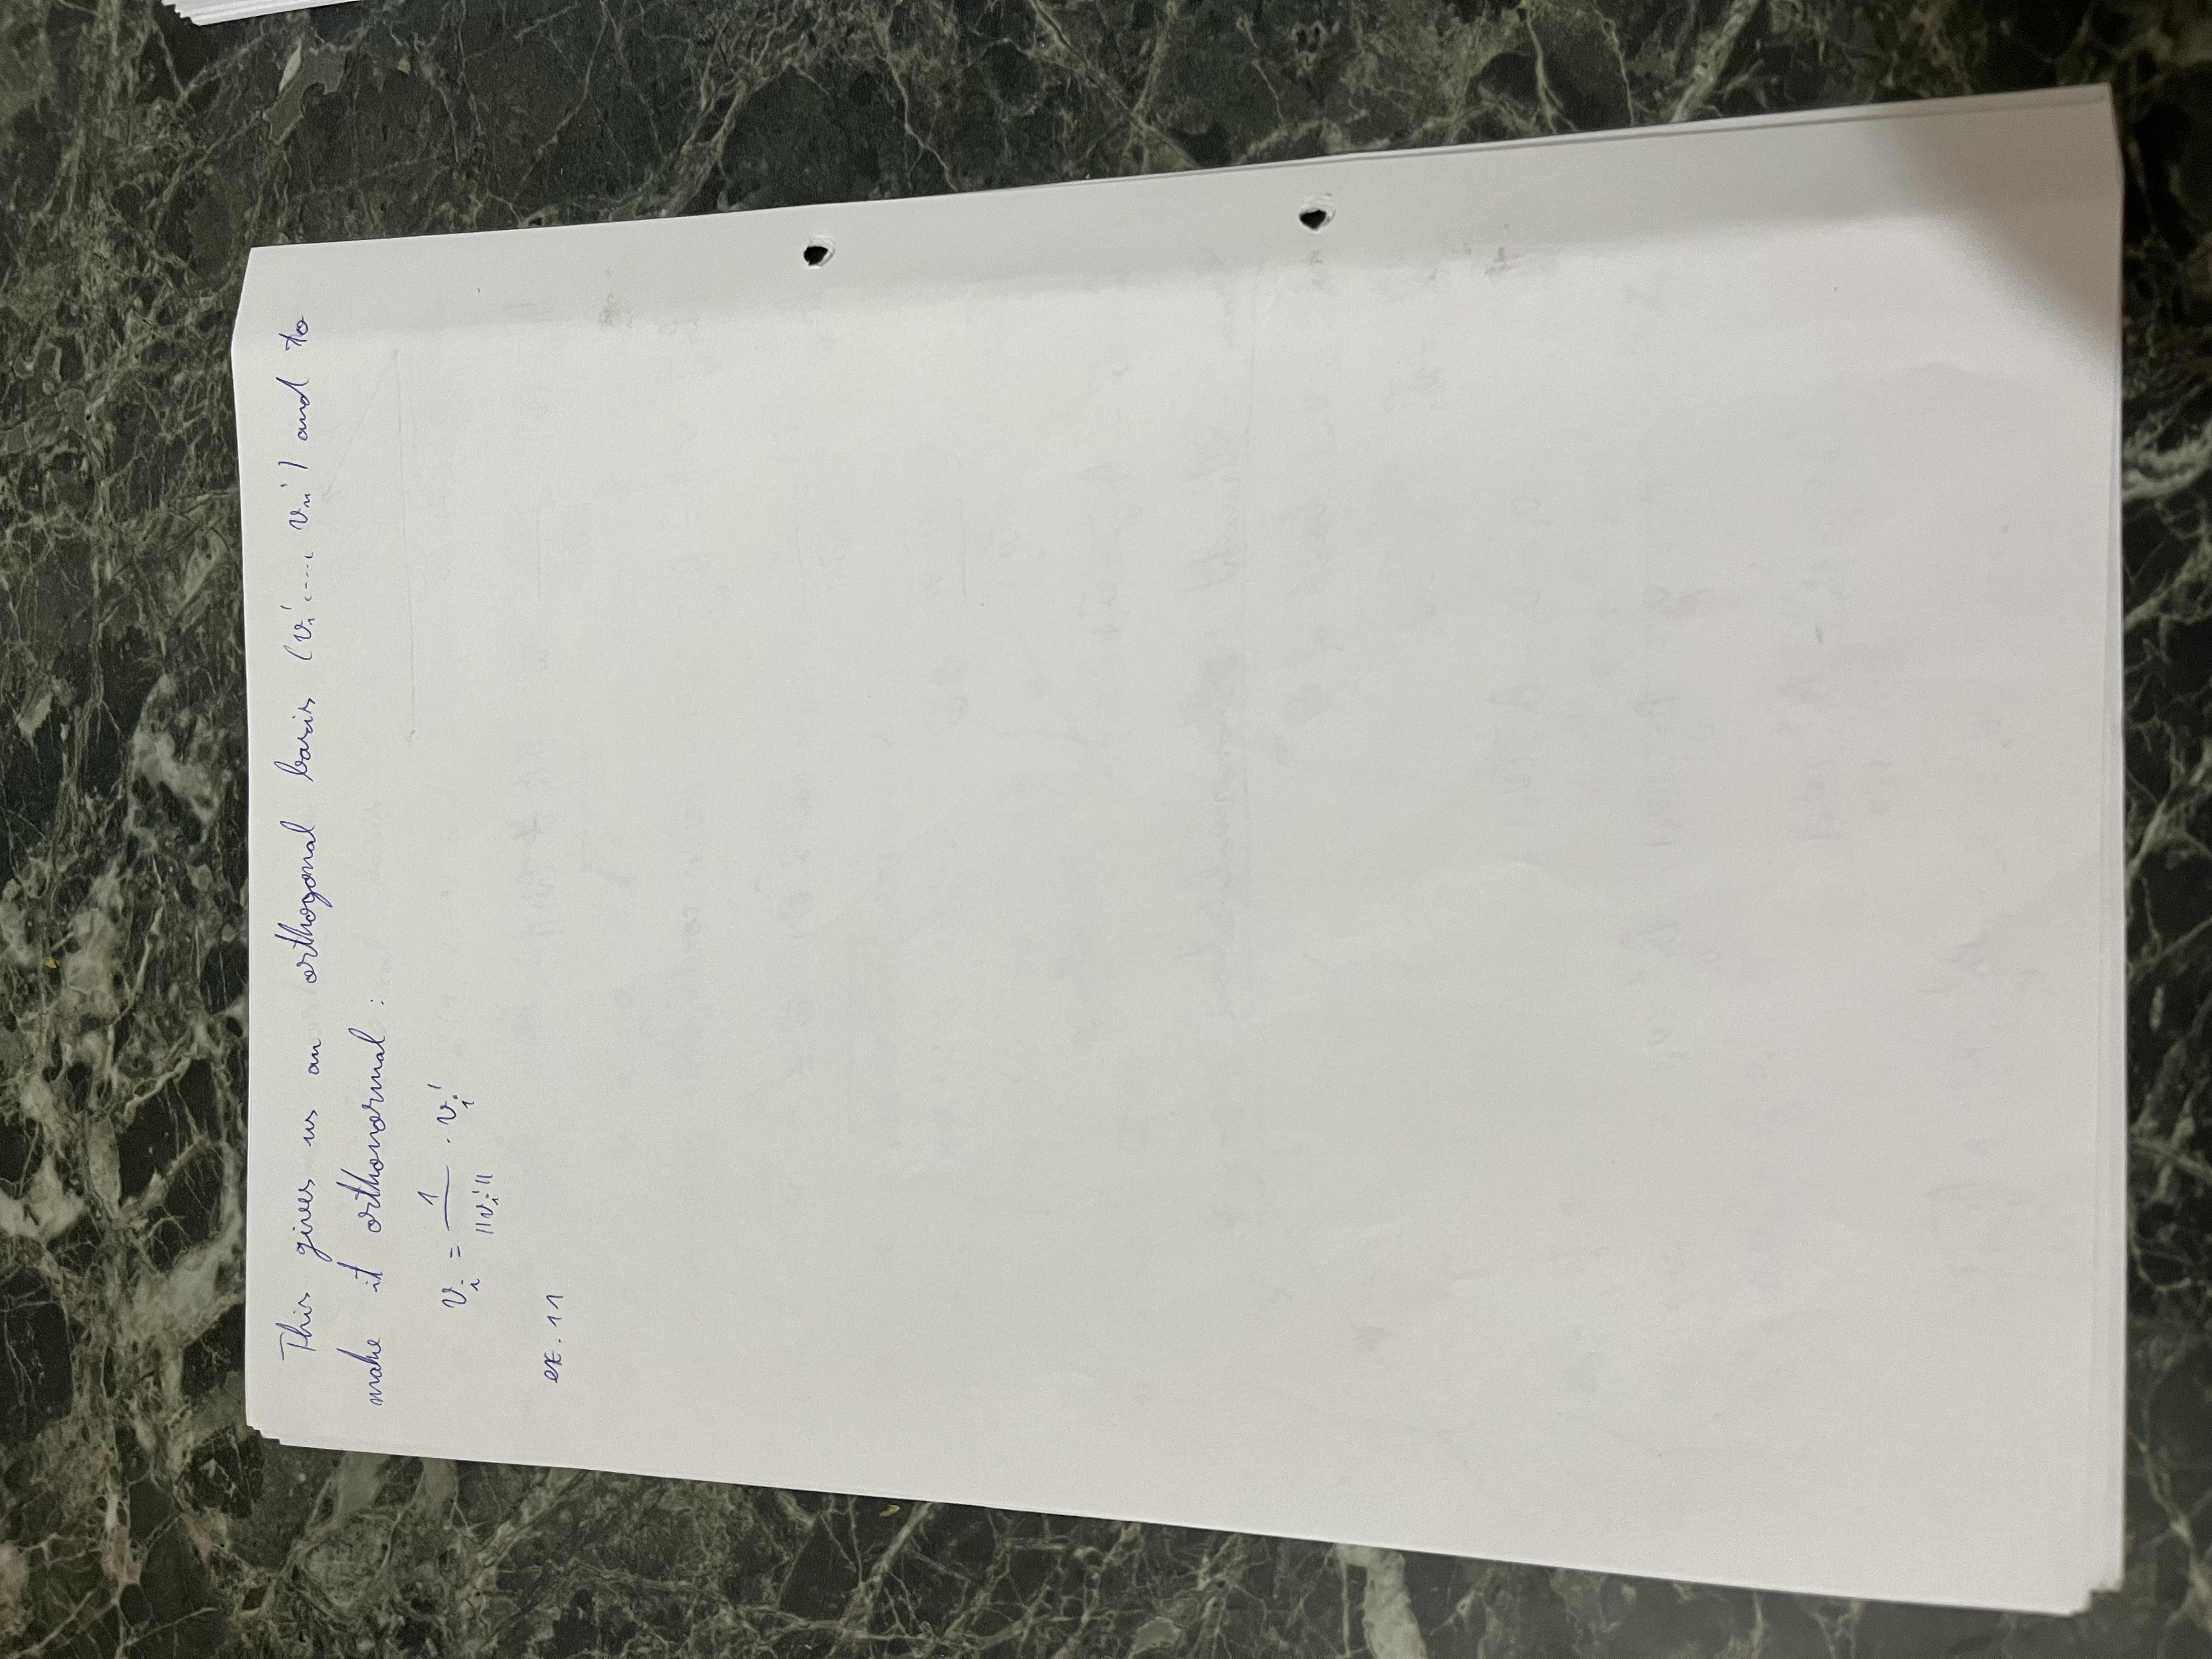 This gives us an orthogonal basis (v₁',..., vₙ') and to
make it orthonormal :
vᵢ = 1/||vᵢ'|| · vᵢ'
ex. 11